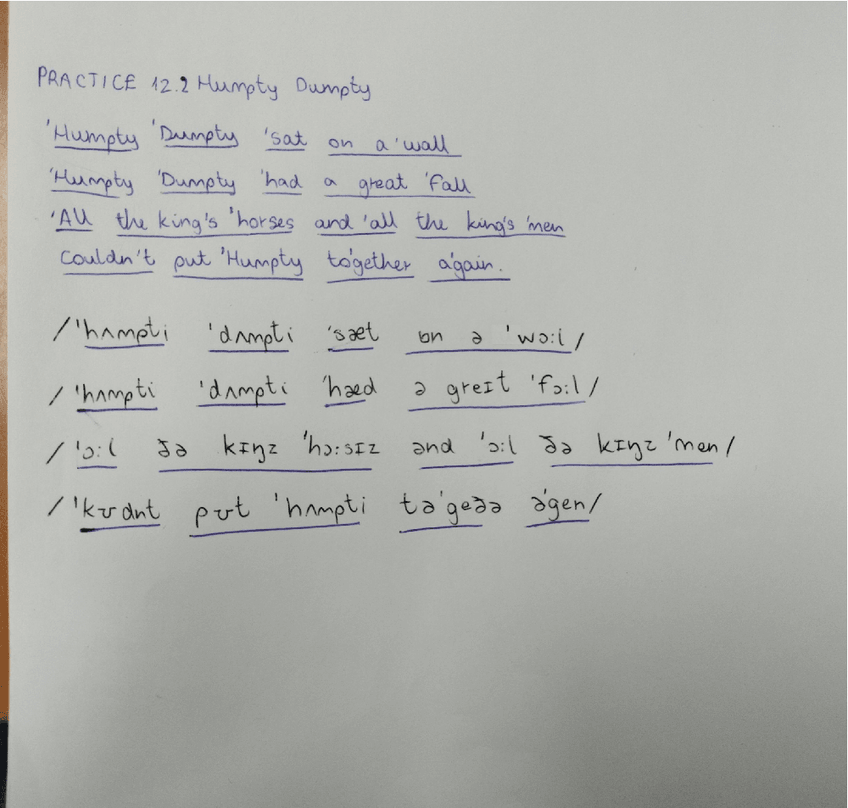 PRACTICE 12.2 Humpty Dumpty
'Humpty 'Dumpty 'sat on a 'wall
'Humpty 'Dumpty 'had a great 'fall
'All the king's 'horses and 'all the king's 'men
Couldn't put 'Humpty to'gether a'gain.
/'hʌmpti 'dʌmpti 'sæt ɒn ə 'wɔ:l/
/'hʌmpti 'dʌmpti 'hæd ə greɪt 'fɔ:l/
/'ɔ:l ðə kɪŋz 'hɔ:sɪz ənd 'ɔ:l ðə kɪŋz 'men/
/'kʊdnt pʊt 'hʌmpti tə'geðə ə'gen/